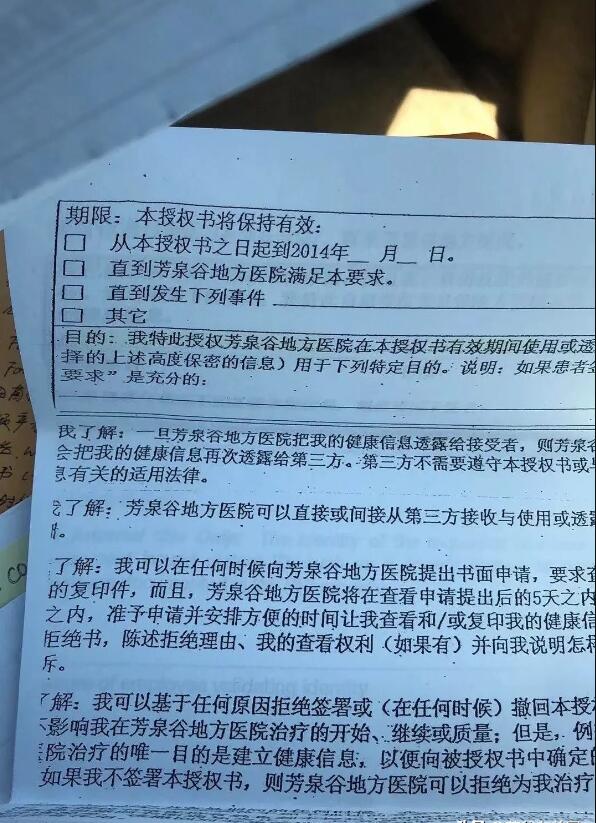 期限：本授权书将保持有效：
□ 从本授权书之日起到2014年__月__日。
□ 直到芳泉谷地方医院满足本要求。
□ 直到发生下列事件
□ 其它
目的：我特此授权芳泉谷地方医院在本授权书有效期间使用或透
择的上述高度保密的信息）用于下列特定目的。说明：如果患者
要求”是充分的：
我了解：一旦芳泉谷地方医院把我的健康信息透露给接受者，则芳泉谷
会把我的健康信息再次透露给第三方。第三方不需要遵守本授权书或与
息有关的适用法律。
了解：芳泉谷地方医院可以直接或间接从第三方接收与使用或透露
了解：我可以在任何时候向芳泉谷地方医院提出书面申请，要求查
的复印件，而且，芳泉谷地方医院将在查看申请提出后的5天之内
之内，准予申请并安排方便的时间让我查看和/或复印我的健康信
拒绝书，陈述拒绝理由、我的查看权利（如果有）并向我说明怎样
斥。
了解：我可以基于任何原因拒绝签署或（在任何时候）撤回本授权
不影响我在芳泉谷地方医院治疗的开始、继续或质量；但是，例
医院治疗的唯一目的是建立健康信息，以便向被授权书中确定的
如果我不签署本授权书，则芳泉谷地方医院可以拒绝为我治疗